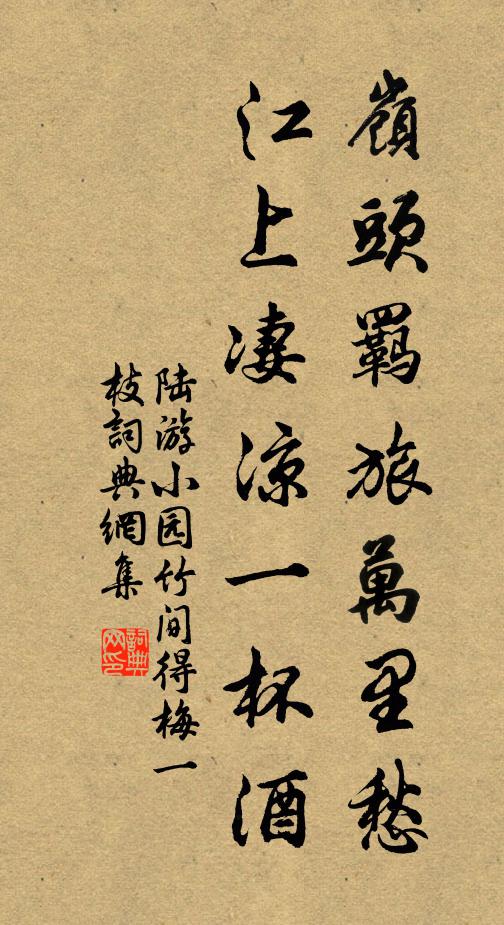 嶺頭羇旅萬里愁
江上凄涼一杯酒
陆游小园竹间得梅一
枝詞典網集
詞典
网印